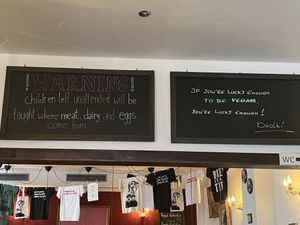 ! WARNING !
Children left unattended will be
taught where meat, dairy and eggs
come from
IF YOU'RE LUCKY ENOUGH
TO BE VEGAN,
YOU'RE LUCKY ENOUGH!
WC